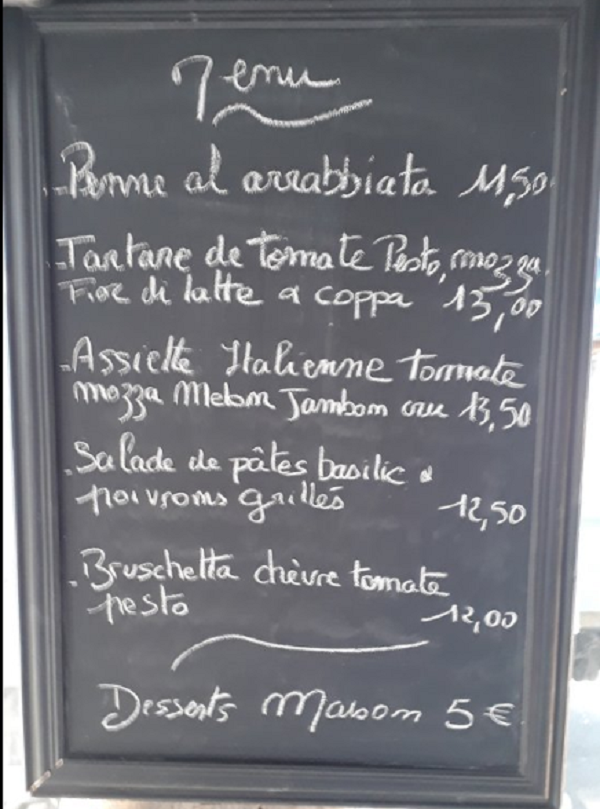 Menu
- Penne al arrabbiata 11,50
- Tartare de tomate Pesto, mozza
Fior di latte a coppa 13,00
- Assiette Italienne tomate
mozza Melon Jambon cru 13,50
. Salade de pâtes basilic &
poivrons grillés 12,50
. Bruschetta chèvre tomate
pesto 12,00
Desserts Maison 5 €